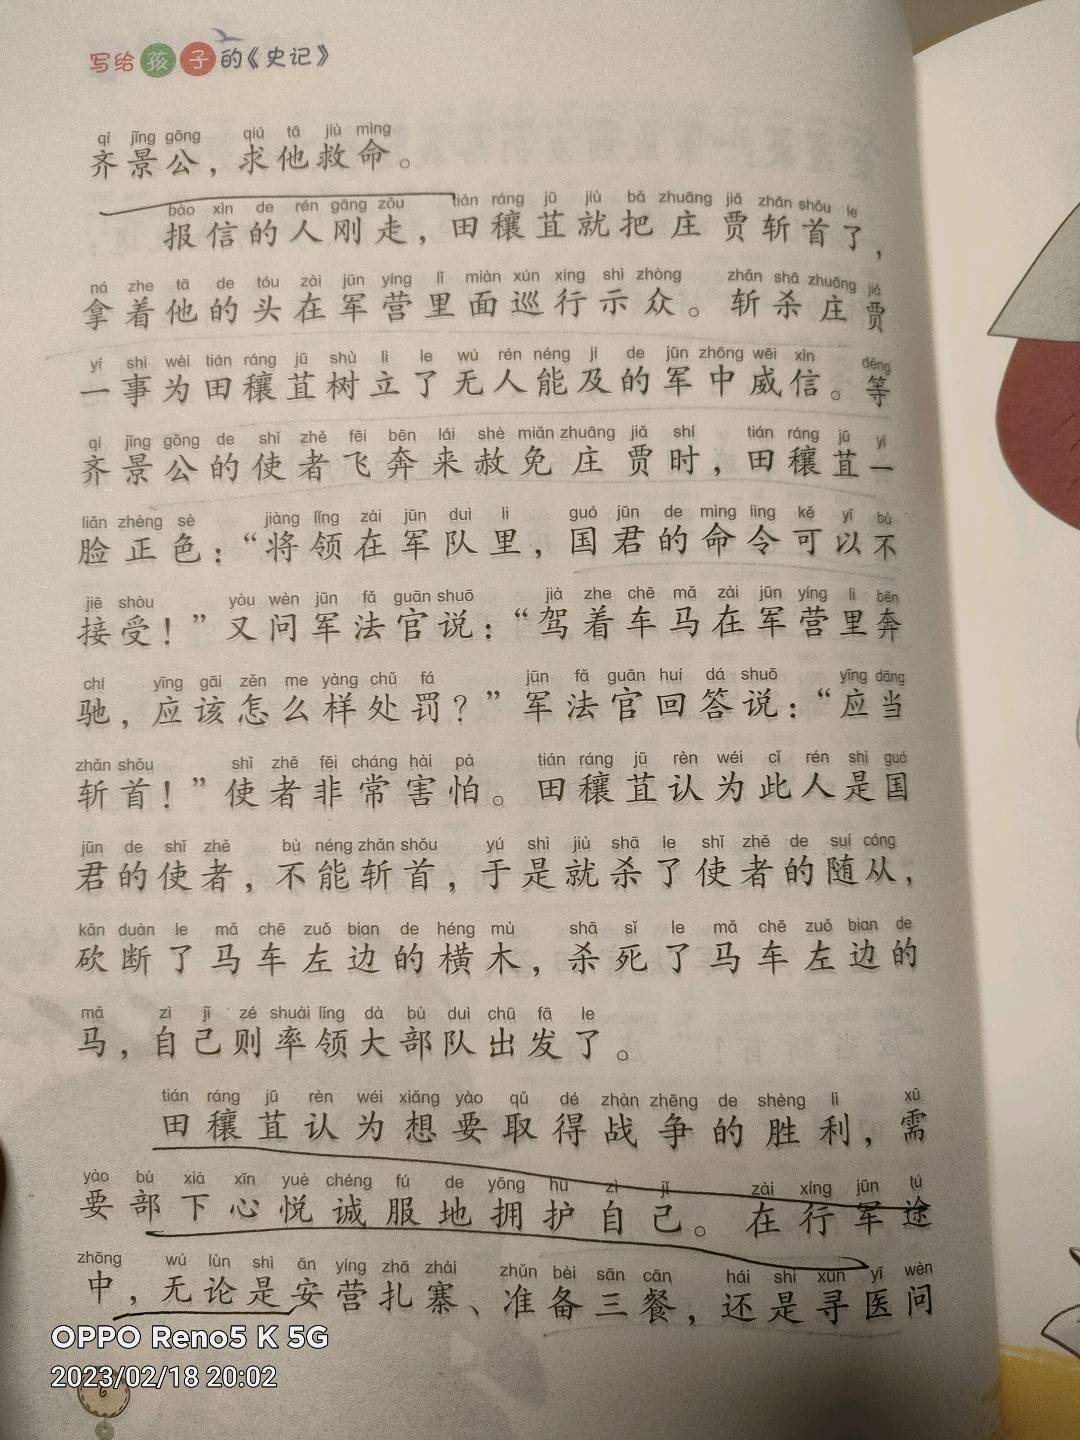 写给孩子的《史记》
qí jǐng gōng qiú tā jiù mìng
齐景公，求他救命。
bào xìn de rén gāng zǒu tián ráng jū jiù bǎ zhuāng jiǎ zhǎn shǒu le
报信的人刚走，田穰苴就把庄贾斩首了，
ná zhe tā de tóu zài jūn yíng lǐ miàn xún xíng shì zhòng zhǎn shā zhuāng jiǎ
拿着他的头在军营里面巡行示众。斩杀庄贾
yí shì wèi tián ráng jū shù lì le wú rén néng jí de jūn zhōng wēi xìn děng
一事为田穰苴树立了无人能及的军中威信。等
qí jǐng gōng de shǐ zhě fēi bēn lái shè miǎn zhuāng jiǎ shí tián ráng jū yì
齐景公的使者飞奔来赦免庄贾时，田穰苴一
liǎn zhèng sè jiàng lǐng zài jūn duì li guó jūn de mìng lìng kě yǐ bù
脸正色：“将领在军队里，国君的命令可以不
jiē shòu yòu wèn jūn fǎ guān shuō jià zhe chē mǎ zài jūn yíng li bēn
接受！”又问军法官说：“驾着车马在军营里奔
chí yīng gāi zěn me yàng chǔ fá jūn fǎ guān huí dá shuō yīng dāng
驰，应该怎么样处罚？”军法官回答说：“应当
zhǎn shǒu shǐ zhě fēi cháng hài pà tián ráng jū rèn wéi cǐ rén shì guó
斩首！”使者非常害怕。田穰苴认为此人是国
jūn de shǐ zhě bù néng zhǎn shǒu yú shì jiù shā le shǐ zhě de suí cóng
君的使者，不能斩首，于是就杀了使者的随从，
kǎn duàn le mǎ chē zuǒ bian de héng mù shā sǐ le mǎ chē zuǒ bian de
砍断了马车左边的横木，杀死了马车左边的
mǎ zì jǐ zé shuài lǐng dà bù duì chū fā le
马，自己则率领大部队出发了。
tián ráng jū rèn wéi xiǎng yào qǔ dé zhàn zhēng de shèng lì xū
田穰苴认为想要取得战争的胜利，需
yào bù xià xīn yuè chéng fú de yōng hù zì jǐ zài xíng jūn tú
要部下心悦诚服地拥护自己。在行军途
zhōng wú lùn shì ān yíng zhā zhài zhǔn bèi sān cān hái shi xún yī wèn
中，无论是安营扎寨、准备三餐，还是寻医问
OPPO Reno5 K 5G
2023/02/18 20:02
6